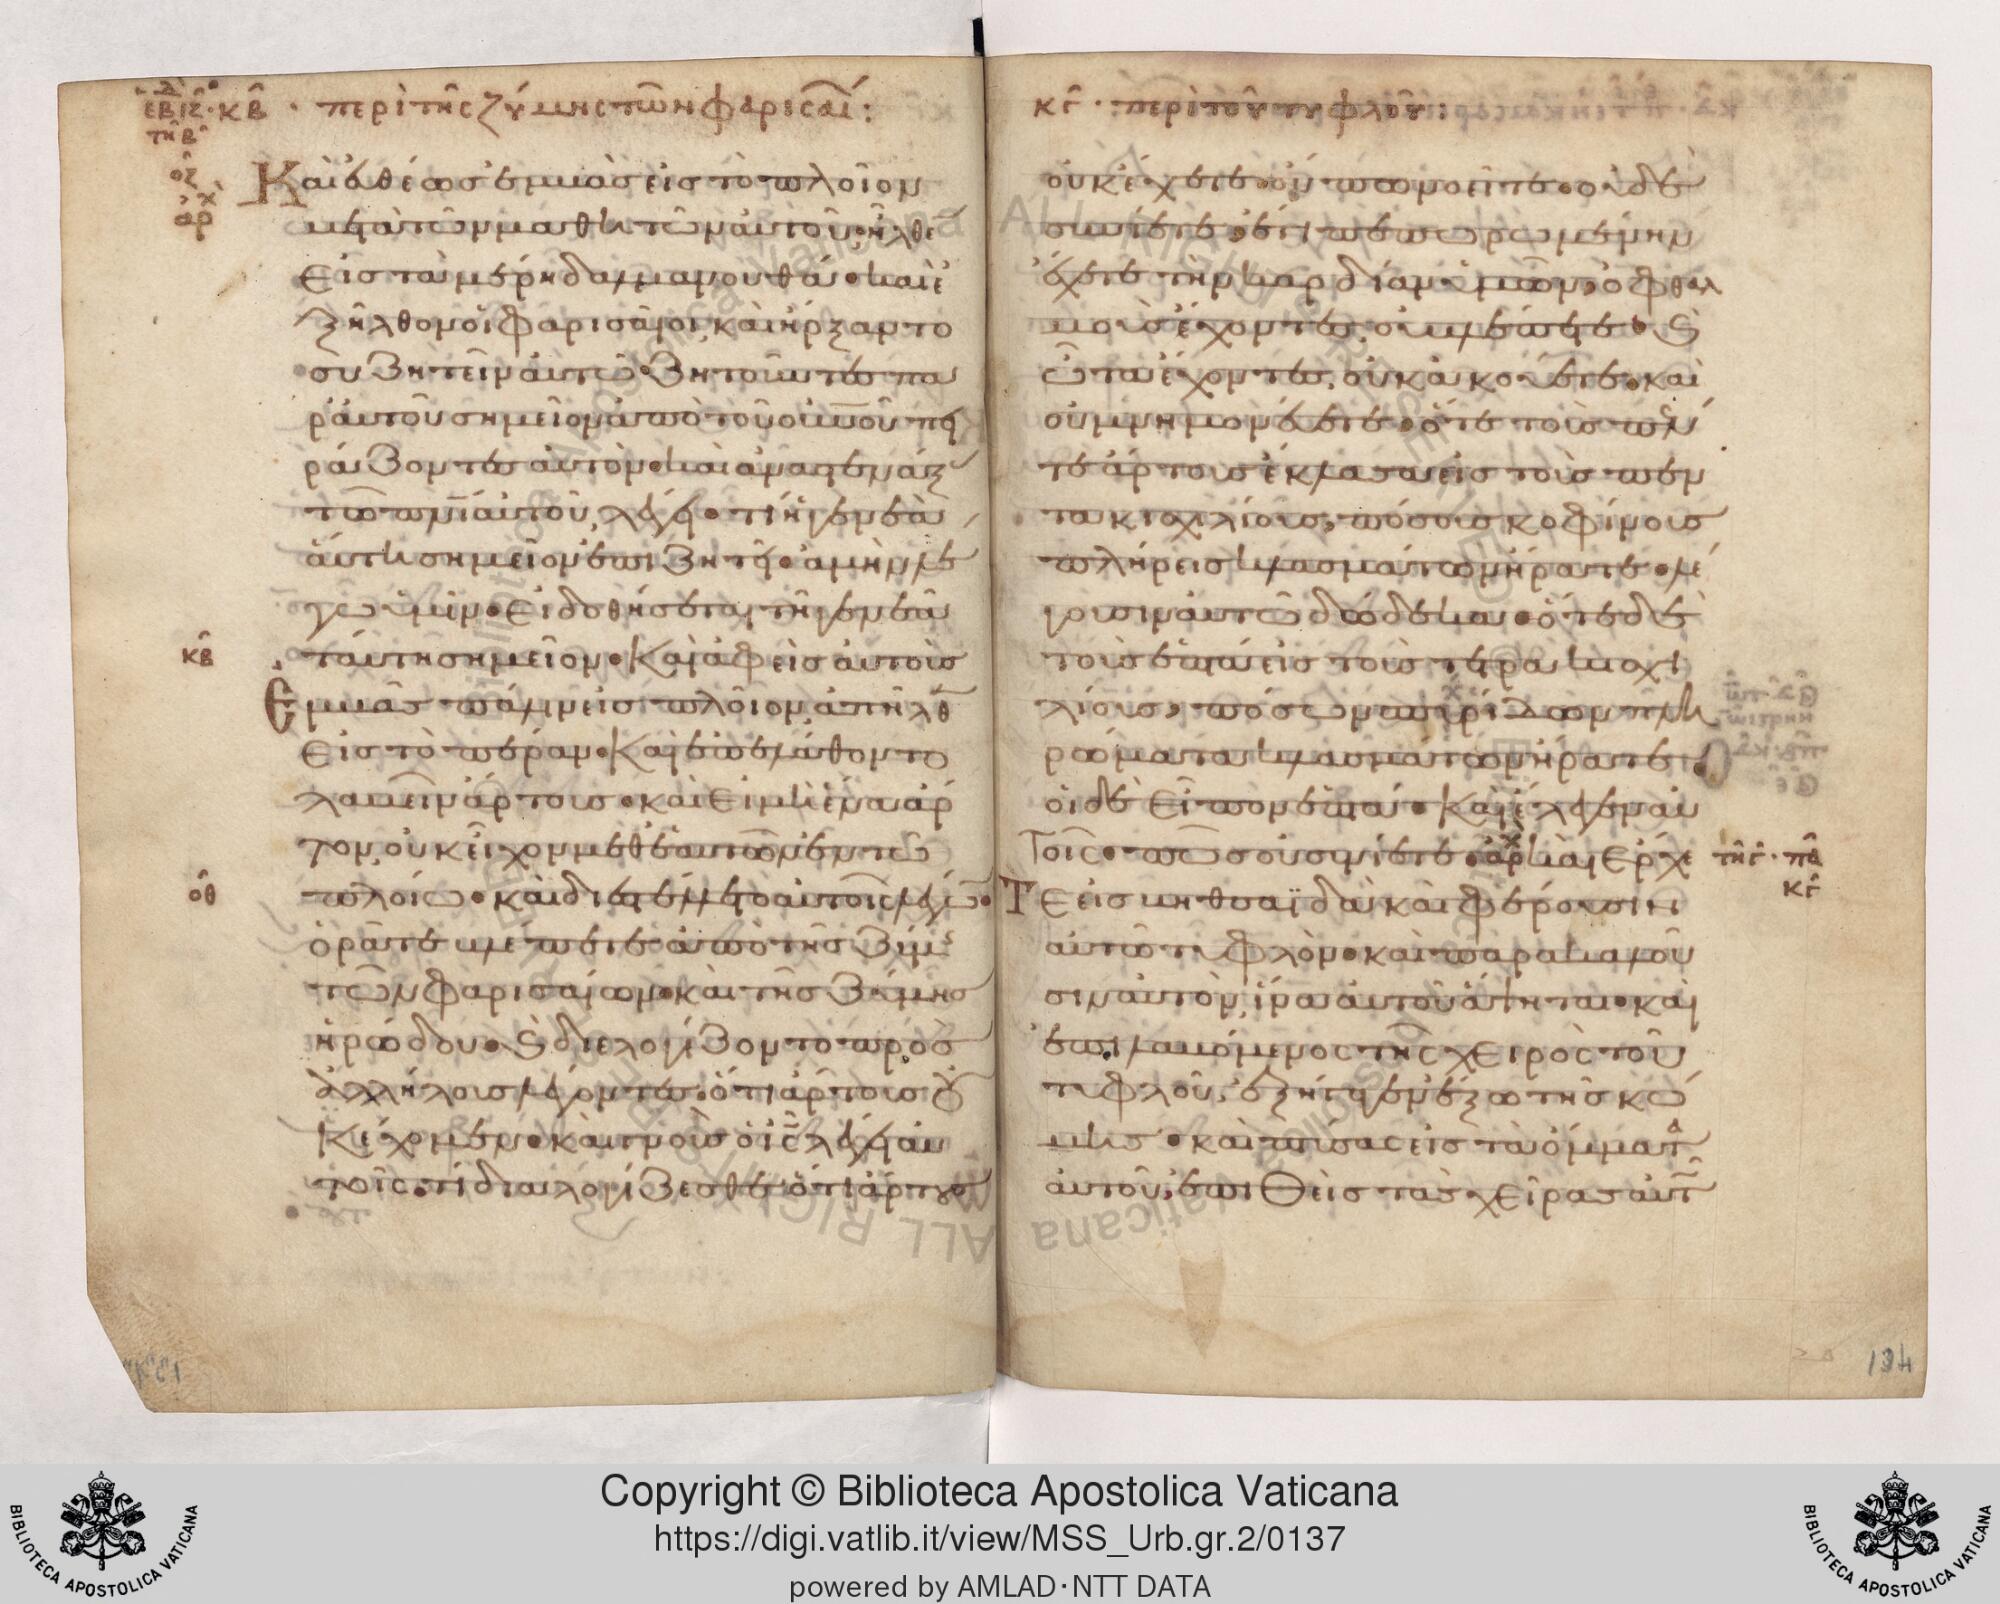 κβ · περὶ τῆς ζύμης τῶν φαρισαί:
οζ
Καὶ ἐυθέως ἐμβὰς εἰς τὸ πλοῖον
μετὰ τῶν μαθητῶν ἀυτοῦ, ἦλθε
εἰς τὰ μέρη δαλμανουθά· καὶ ἐ
ξῆλθον οἱ φαρισαῖοι, καὶ ἤρξαντο
συζητεῖν ἀυτῶ· ζητοῦντες πα
ρ ἀυτοῦ σημεῖον ἀπὸ τοῦ οὐνοῦ πει
ράζοντες ἀυτόν· καὶ ἀναστενάξ
τῶ πνι ἀυτοῦ, λέγει· τί ἡ γενεὰ
ἅυτη σημεῖον ἐπιζητεῖ· ἀμὴν λέ
γω ὑμῖν· εἰ δοθήσεται τῆ γενεᾶ
κβ
ταύτη σημεῖον· Καὶ ἀφεὶς ἀυτοὺς
ἐμβὰς πάλιν εἰς πλοῖον, ἀπῆλθ
εἰς τὸ πέραν· Καὶ ἐπελάθοντο
λαβεῖν ἄρτους· καὶ εἰ μὴ ἕνα ἄρ
τον, οὐκ εἶχον μεθ ἑαυτῶν ἐν τῶ
οθ
πλοίω· καὶ διεστέλλετο ἀυτοῖς λέγω·
ὁρᾶτε βλέπετε ἀπὸ τῆς ζύμ
τῶν φαρισαίων· καὶ τῆς ζύμης
ἡρώδου· Ϗ διελογίζοντο πρὸς
ἀλλήλους λέγοντες· ὅτι ἄρτους ȣ
κ ἔχομεν· καὶ γνοὺς ὁ ις λέγει ἀυ
τοῖς· τί διαλογίζεσθε ὅτι ἄρτους
κγ · περὶ τοῦ τυφλοῦ:
οὐκ ἔχετε· οὔπω νοεῖτε· οὐδὲ
συνίετε, ἔτι πεπωρωμένην
ἔχετε τὴν καρδίαν ὑμῶν, ὀφθαλ
μοὺς ἔχοντες, οὐ βλέπετε· Ϗ
ὦτα ἔχοντες, οὐκ ἀκούετε· καὶ
οὐ μνημονέυετε· ὅτε τοὺς πέν
τε ἄρτους ἔκλασα εἰς τοὺς πεν
τακισχιλίους, πόσους κοφίνους
πλήρεις κλασμάτων ἤρατε· λέ
γουσιν ἀυτῶ δώδεκα· ὅτε δὲ
τοὺς ἑπτὰ εἰς τοὺς τετρακισχι
λίους, πόσων σπυρίδων πλη
ρώματα κλασμάτων ἤρατε·
οἱ δὲ εἶπον ἑπτά· Καὶ ἔλεγεν ἀυ
τοῖς· πῶς οὐ συνίετε· Καὶ ἔρχε
κγ
ται εἰς βηθσαϊδὰ· καὶ φέρουσιν
ἀυτῶ τυφλόν· καὶ παρακαλοῦ
σιν ἀυτὸν, ἵνα ἀυτοῦ ἅψηται· καὶ
ἐπιλαβόμενος τῆς χειρὸς τοῦ
τυφλοῦ, ἐξήγαγεν ἔξω τῆς κώ
μης· καὶ πτύσας εἰς τὰ ὄμματα
ἀυτοῦ, ἐπιθεὶς τὰς χεῖρας ἀυτ
134
Copyright © Biblioteca Apostolica Vaticana
https://digi.vatlib.it/view/MSS_Urb.gr.2/0137
powered by AMLAD·NTT DATA
BIBLIOTECA APOSTOLICA VATICANA
BIBLIOTECA APOSTOLICA VATICANA